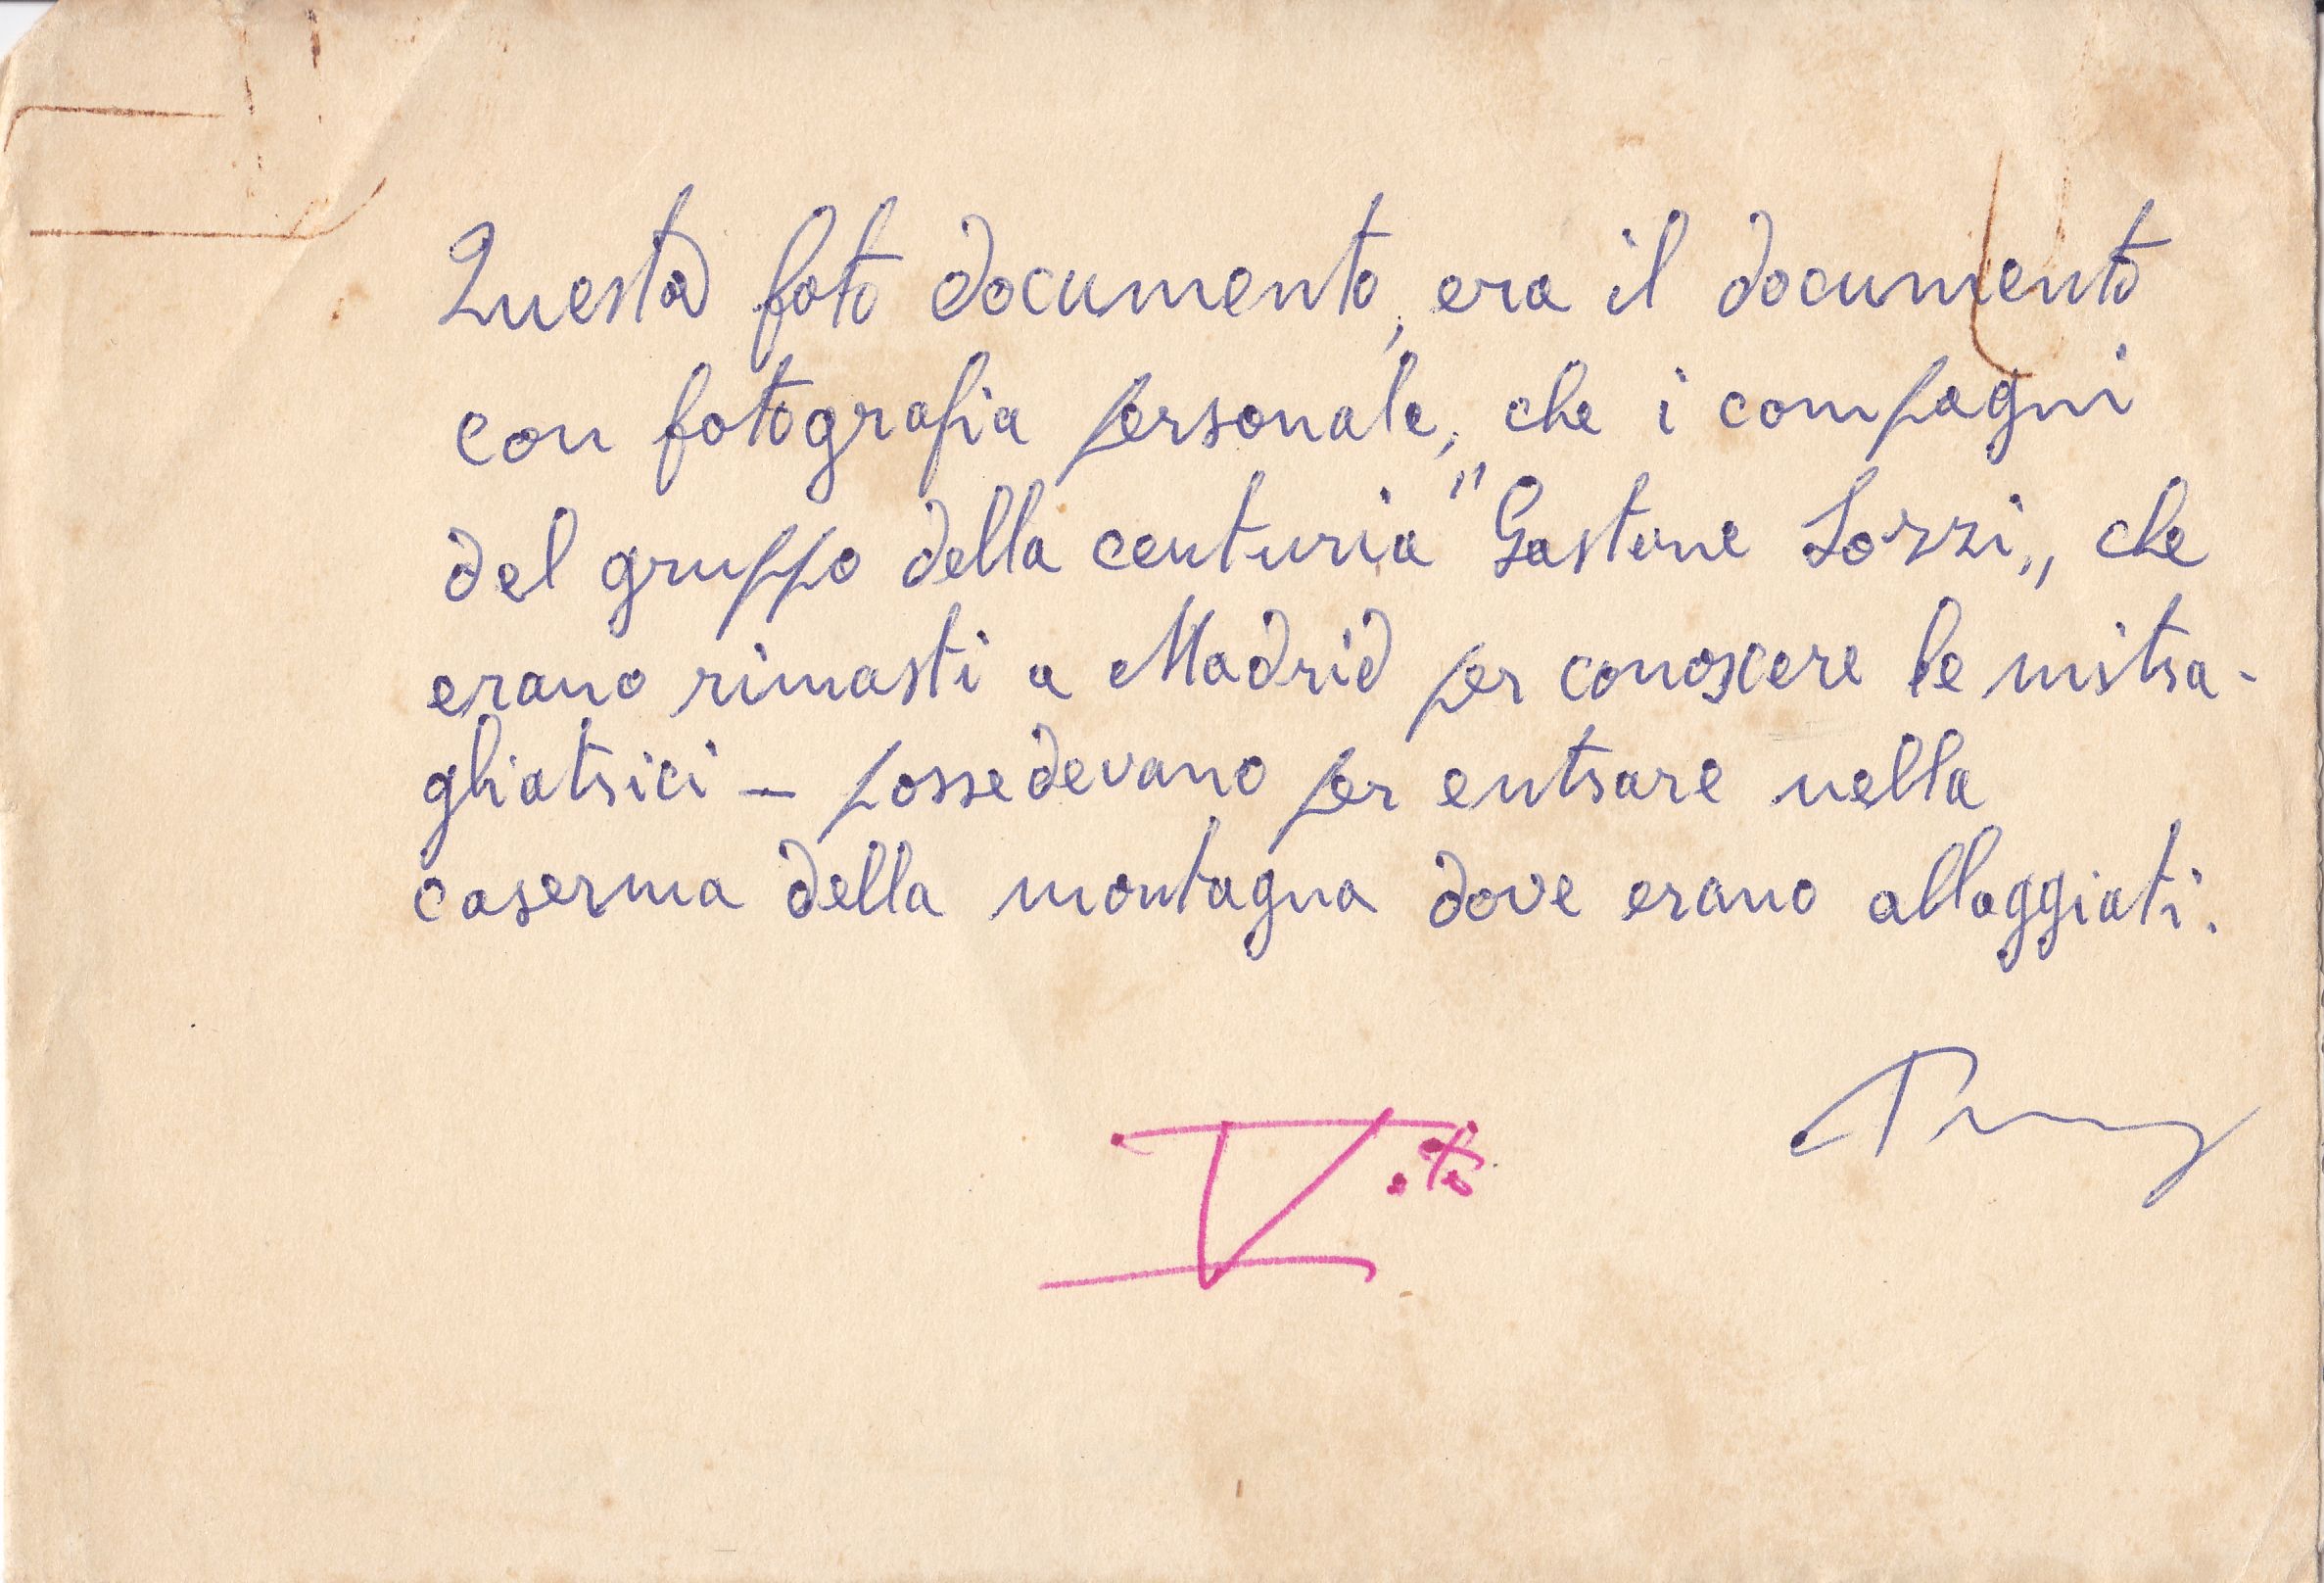 Questa foto documento, era il documento
con fotografia personale, che i compagni
del gruppo della centuria "Gastone Sozzi„ che
erano rimasti a Madrid per conoscere le mitra-
gliatrici - possedevano per entrare nella
caserma della montagna dove erano alloggiati.
V.to